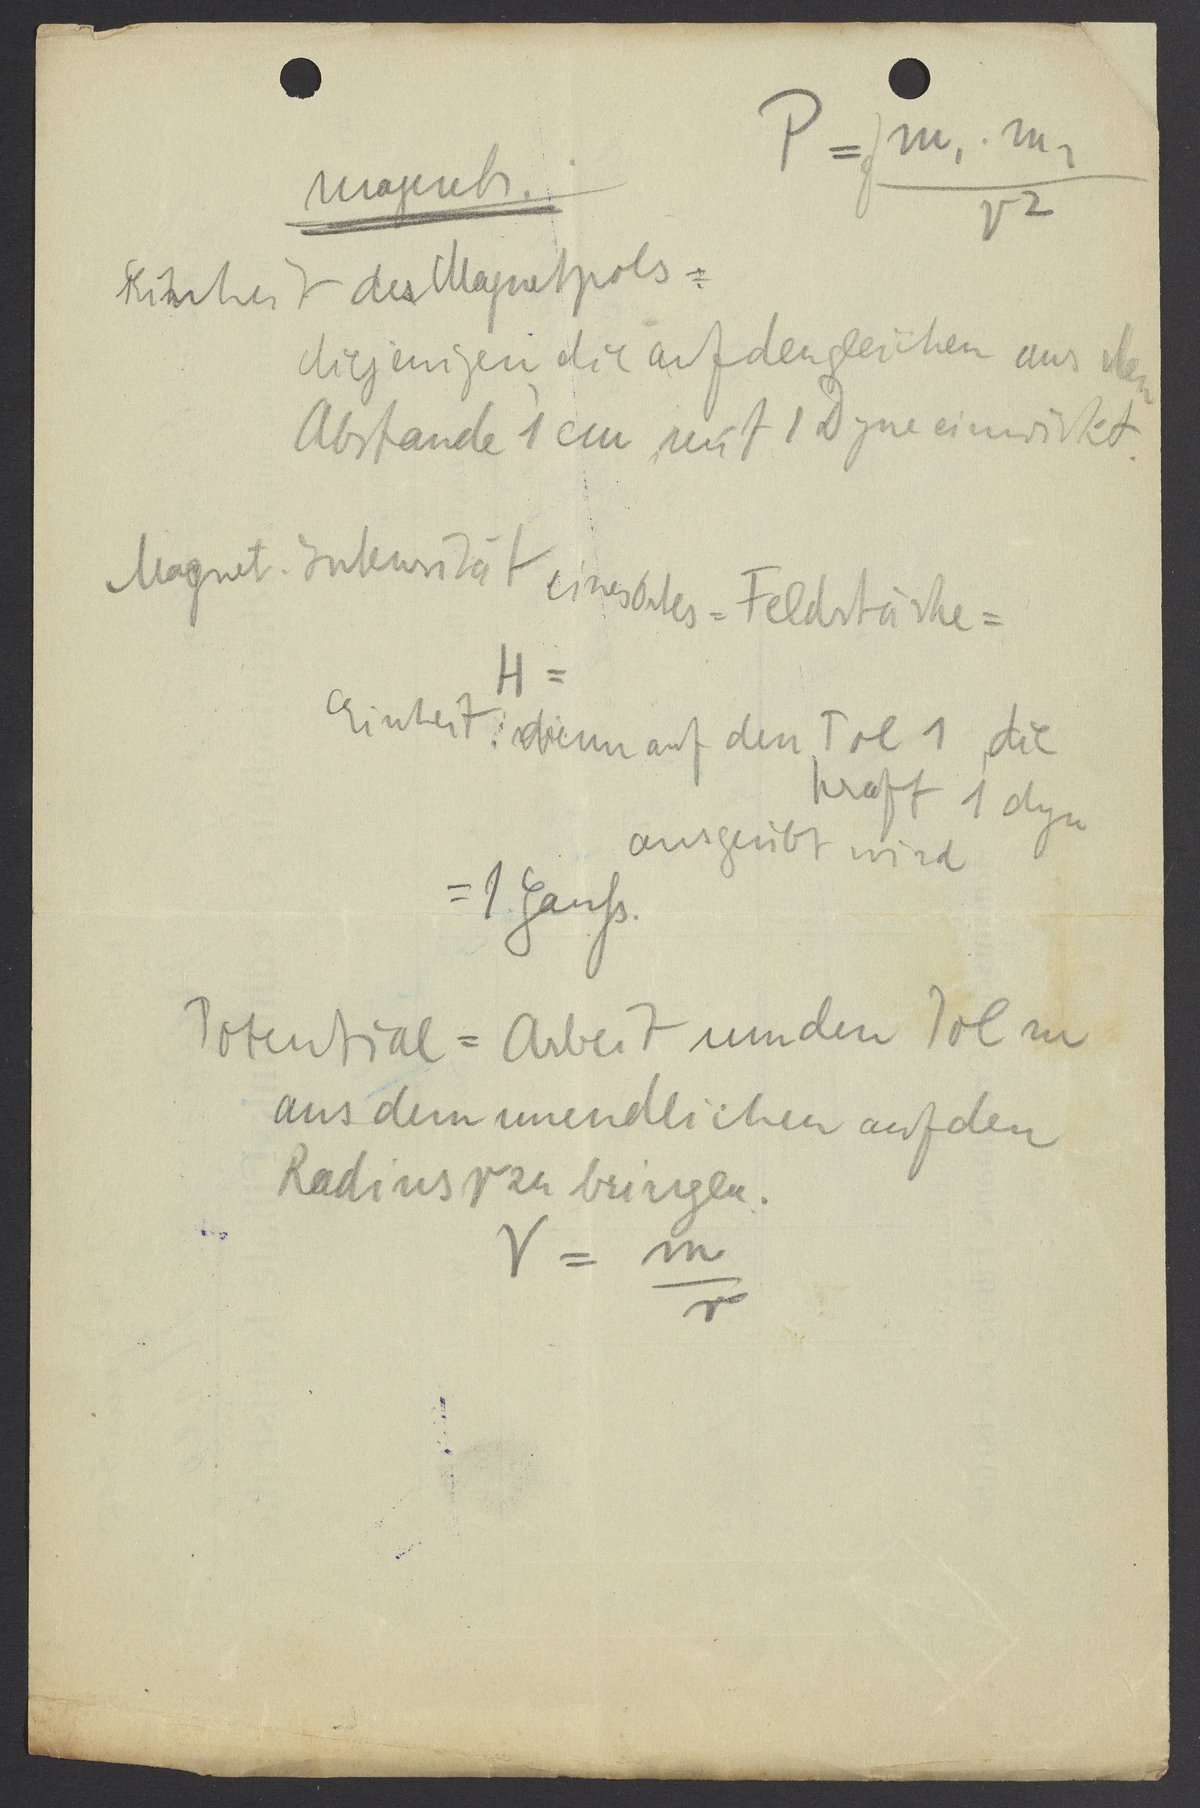 P = f m₁ · m₂ / r²
Magnet.
Einheit des Magnetpols =
diejenigen, die auf den gleichen aus dem
Abstande 1 cm mit 1 Dyne einwirkt.
Magnet. Intensität eines Ortes = Feldstärke =
H =
Einheit: wenn auf den Pol 1 die
Kraft 1 dyn
ausgeübt wird
= 1 Gauß.
Potential = Arbeit um den Pol m
aus dem unendlichen auf den
Radius r zu bringen.
V = m / r